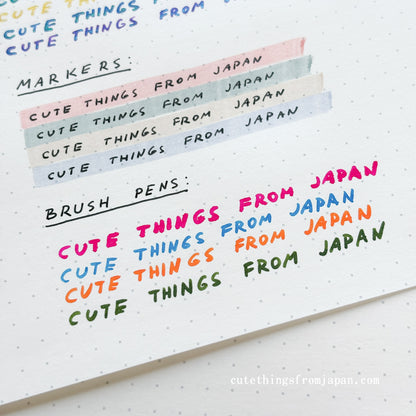 CUTE THINGS FROM
CUTE THINGS FROM
MARKERS:
CUTE THINGS FROM JAPAN
CUTE THINGS FROM JAPAN
CUTE THINGS FROM JAPAN
CUTE THINGS FROM JAPAN
BRUSH PENS:
CUTE THINGS FROM JAPAN
CUTE THINGS FROM JAPAN
CUTE THINGS FROM JAPAN
CUTE THINGS FROM JAPAN
cutethingsfromjapan.com